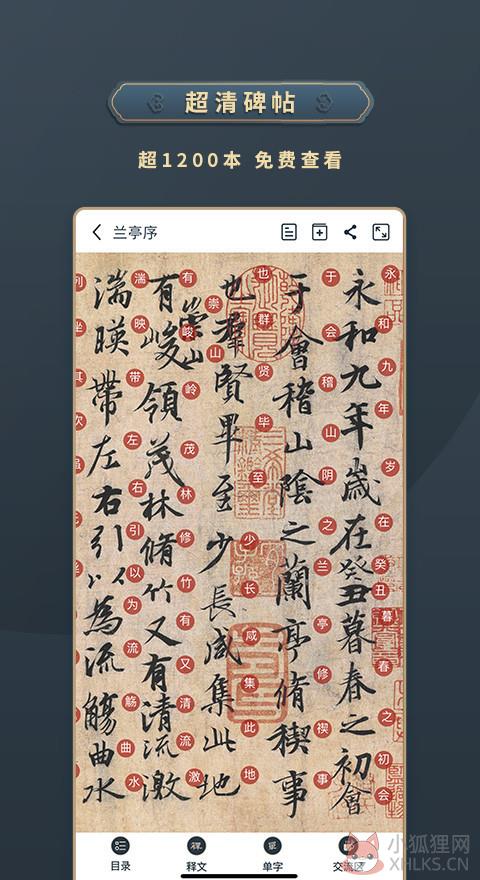 超清碑帖
超1200本 免费查看
兰亭序
永和九年歲在癸丑暮春之初會
永和九年岁在癸丑暮春之初会
于會稽山陰之蘭亭脩稧事
于会稽山阴之兰亭修禊事
也羣賢畢至少長咸集此地
也群贤毕至少长咸集此地
有崇山峻領茂林脩竹又有清流激
有崇山峻岭茂林修竹又有清流激
湍暎帶左右引以為流觴曲水
湍映带左右引以为流觞曲水
目录
释文
单字
交流区
小狐狸网
XHLKS.CN